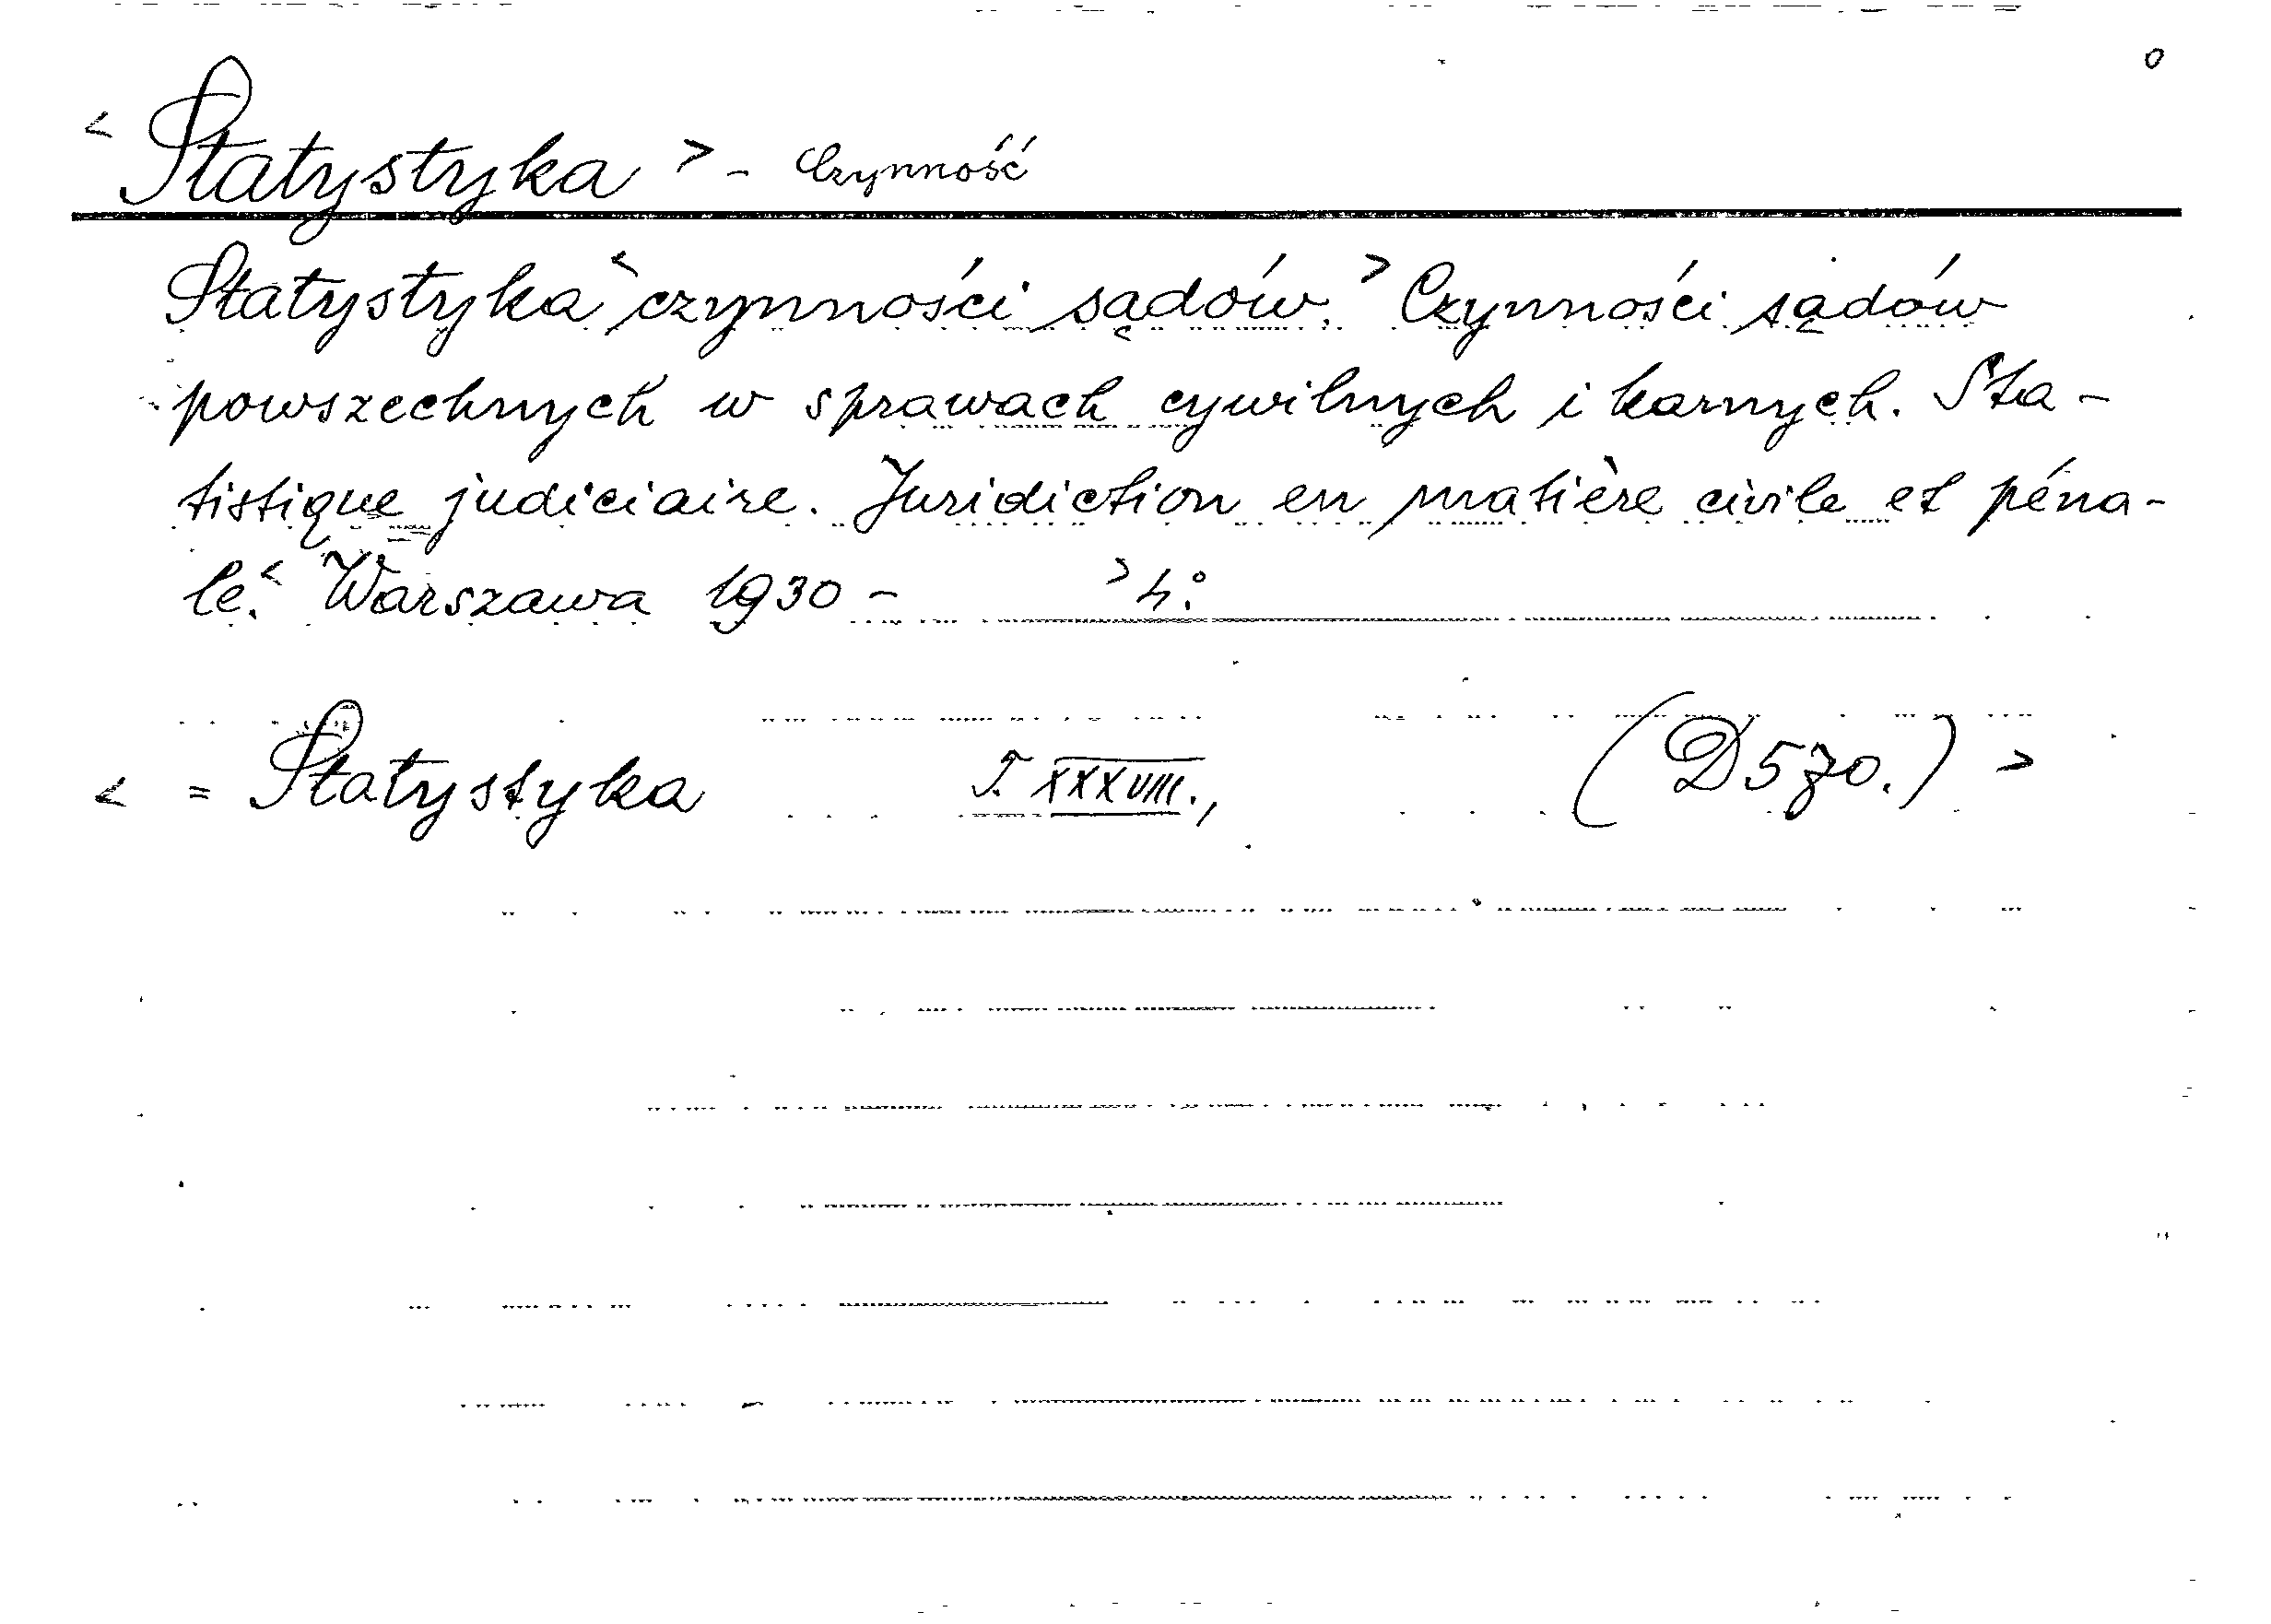 o
< Statystyka > - Czynność
Statystyka < czynności sądów. > Czynności sądów
powszechnych w sprawach cywilnych i karnych. Sta-
tistique judiciaire. Juridiction en matière civile et péna-
le. < Warszawa 1930 - > 4°.
< = Statystyka T. XXXVIII., (D 570.) >